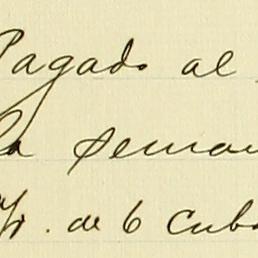 Pagado al
la seman
de 6 Cuba